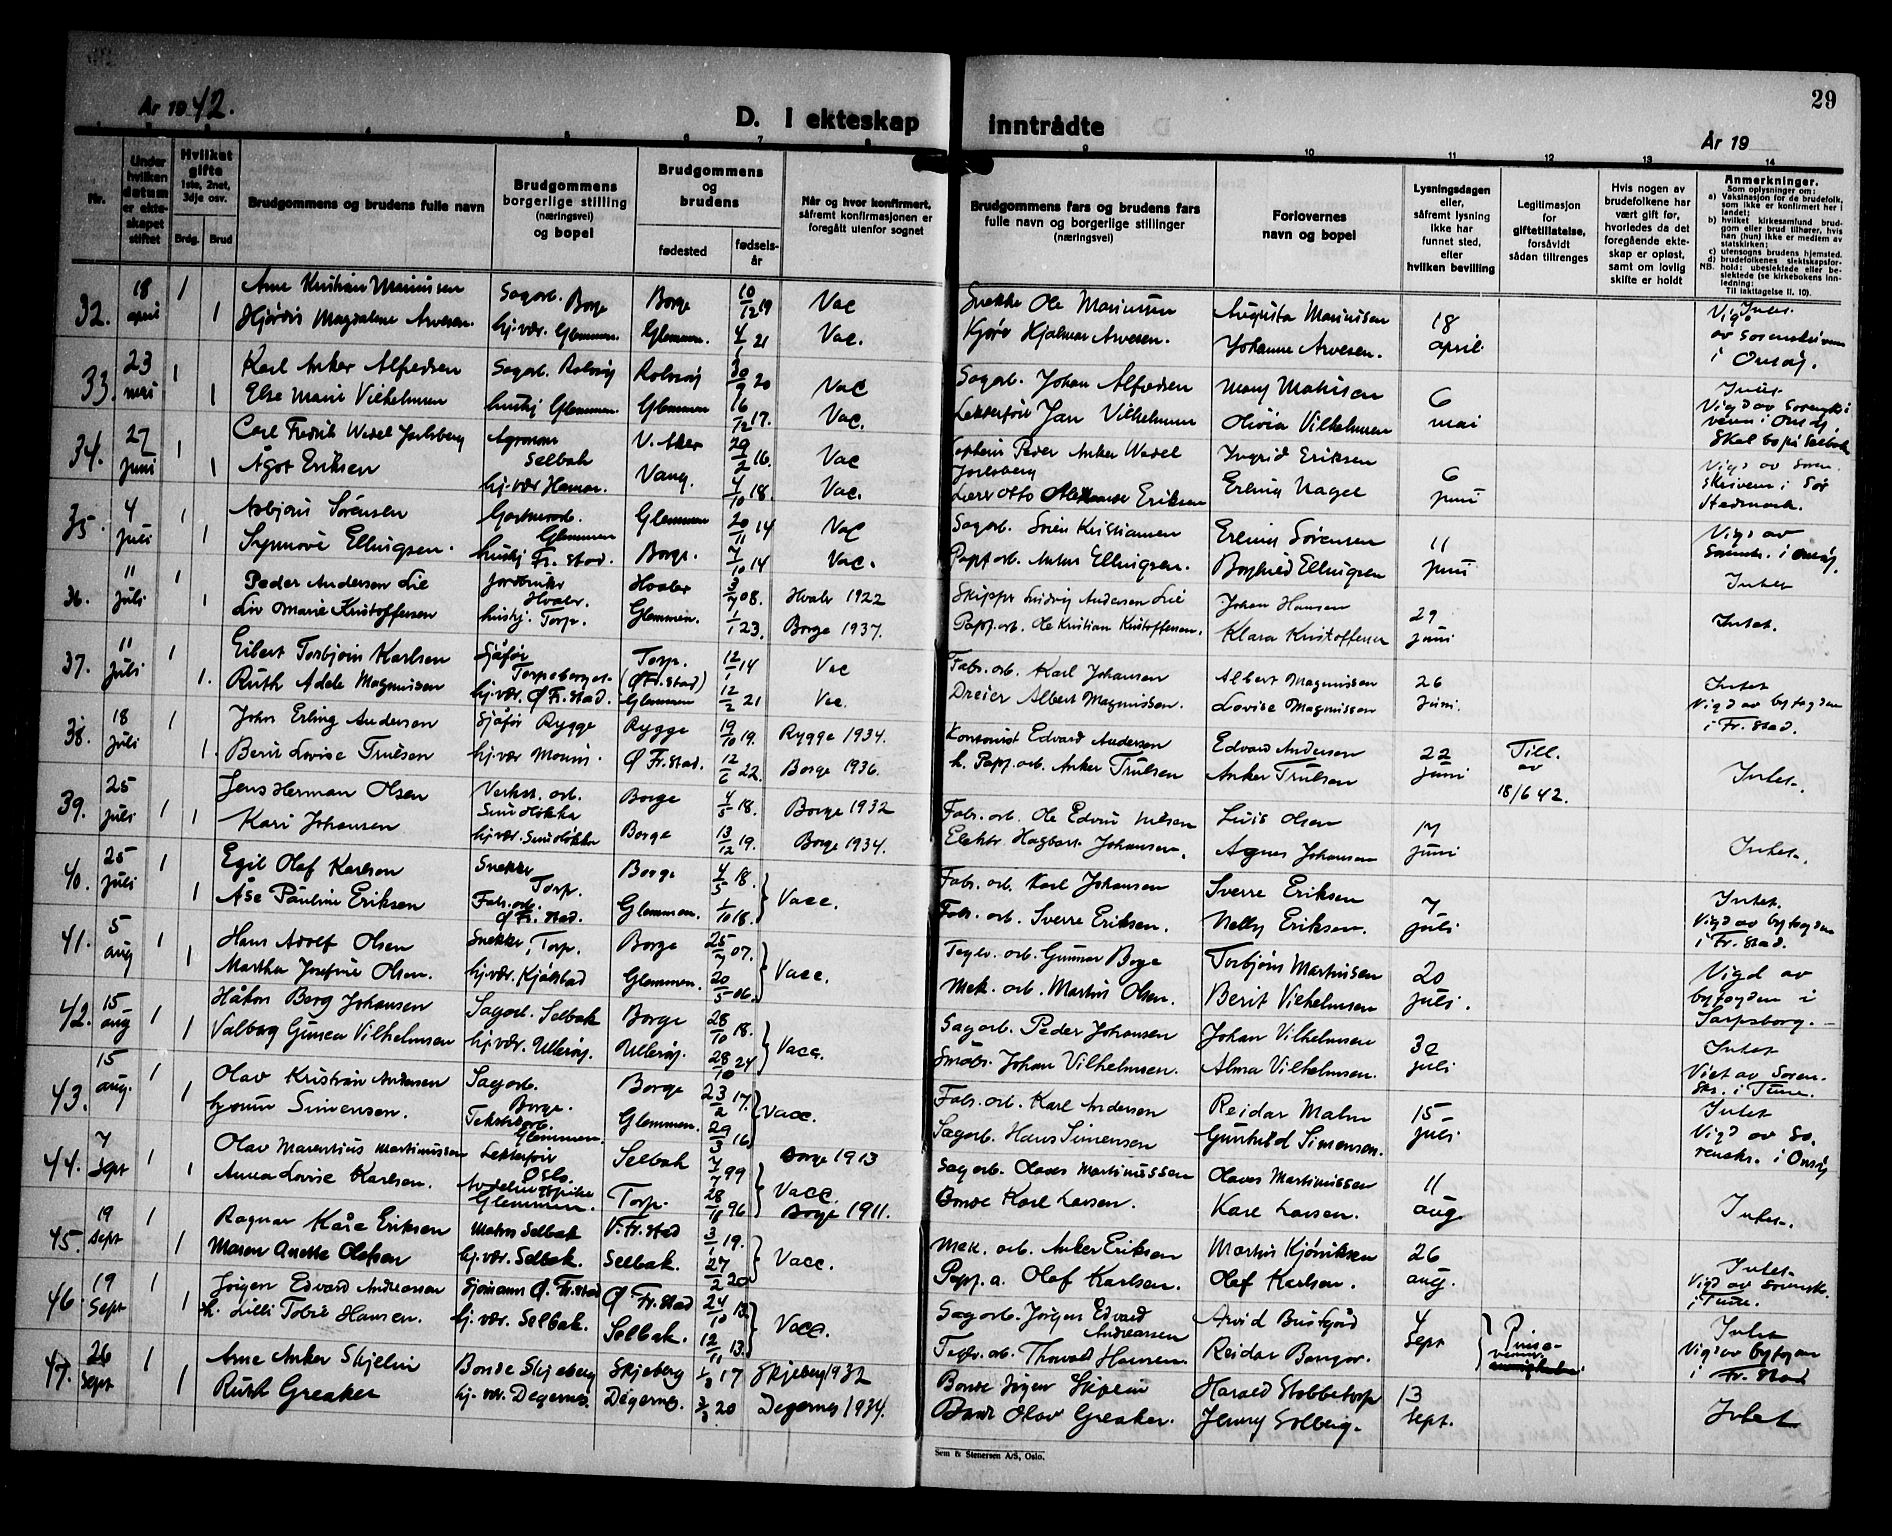 År 1942.
D. I ekteskap inntrådte
29
År 19
Nr.
Under hvilken datum er ekteskapet stiftet
Hvilket gifte 1ste, 2net, 3dje osv.
Brdg. Brud
Brudgommens og brudens fulle navn
Brudgommens borgerlige stilling (næringsvei) og bopel
Brudgommens og brudens
fødested
fødselsår
Når og hvor konfirmert, såfremt konfirmasjonen er foregått utenfor sognet
Brudgommens fars og brudens fars fulle navn og borgerlige stillinger (næringsvei)
Forlovernes navn og bopel
Lysningsdagen eller, såfremt lysning ikke har funnet sted, efter hvilken bevilling
Legitimasjon for giftetillatelse, forsåvidt sådan tiltrenges
Hvis nogen av brudefolkene har vært gift før, hvorledes da det foregående ekteskap er opløst, samt om lovlig skifte er holdt
Anmerkninger.
Som oplysninger om:
a) Vaksinasjon for de brudefolk, som ikke er konfirmert her i landet;
b) hvilket kirkesamfund brudgom eller brud tilhører, hvis han (hun) ikke er medlem av statskirken;
c) utensogns brudens hjemsted.
d) brudefolkenes slektskapsforhold: ubeslektede eller beslektede (se kirkebokens innledning:
NB. Til iakttagelse II. 10).
32. 18 april 1 Arne Kristian Marinisen Sagarb. Borge Borge 10/12 19 Vac Snekke Ole Marinisen Augusta Marinisen 18 april Intet
1 Hjørdis Magdalene Arvesen hj.vær. Glemmen Glemmen. 4/1 21 Vac. Kjøre Hjalmar Arvesen. Johanne Arvesen. Vigd av Sorenskriveren i Onsøy.
33. 23 mai 1 Karl Anker Alfredsen Sagarb. Rolvsøy Rolvsøy 30/9 20 Vac Sagarb. Johan Alfredsen 6 mai Intet
1 Else Marie Vilhelmsen hushj Glemmen Glemmen 16/12 17. Vac. Lektefør Jan Vilhelmsen Olivia Vilhelmsen Vigd av Sorenskriveren i Onsøy. Skal bo på Selbak
34. 27 juni 1 Carl Fredrik Wedel Jarlsberg Agronom Selbak V. Aker 29/2 16. Vac Peder Anker Wedel Jarlsberg Ingrid Eriksen 6 juni
1 Ågot Eriksen hj.vær Hamar. Vang. 4/10 18. Vac. Lærer Otto Eriksen Erling Nagel Vigd av Sorenskriveren i Sør Hedmark.
35. 4 juli 1 Asbjørn Sørensen Gartnerarb. Glemmen Glemmen 20/11 14 Vac Sagarb. Sørin Kristiansen Erling Sørensen 11 juni Vigd av
1 Synnøve Ellingsen. hushj Fr.stad. Borge. 7/10 14 Vac. Papp.arb. Anton Ellingsen. Borghild Ellingsen Sorenskr. i Onsøy.
36. 11 juli 1 Peder Andersen Lie Jordbruker Hvaler. Hvaler 3/7 08. Hvaler 1922 Skipper Ludvig Andersen Lie Johan Hansen 29 juni Intet
1 Liv Marie Kristoffersen hushj. Torp. Glemmen. 1/1 23. Borge 1937. Papp.arb. Ole Kristian Kristoffersen. Klara Kristoffersen Intet.
37. 11 juli 1 Eibert Torbjørn Karlsen Sjåfør Torpeberget. Torp. (Ø Fr.stad) 12/1 14 Vac Fabr. arb. Karl Johansen Albert Magnussen 26 juni. Intet
1. Ruth Adele Magnussen hj.vær. Ø Fr.stad. Glemmen 12/2 21 Vac. Dreier Albert Magnussen. Lovise Magnussen Vigd av byfogden i Fr.stad.
38. 18 juli 1 John Erling Andersen Sjåfør Rygge Rygge 19/10 19. Rygge 1934. Kontorist Edvard Andersen Edvard Andersen 22 juni Till. av 18/6 42. Intet.
1. Berit Lovise Trulsen hj.vær Moum. Ø Fr.stad. 12/6 22. Borge 1936. h. Papp.arb. Anker Trulsen Anker Trulsen
39. 25 juli 1 Jens Herman Olsen Verkst. arb. Borge 4/5 18. Borge 1932 Fabr. arb. Ole Edvin Nilsen Lovis Olsen 17 juni Intet.
1 Kari Johansen hj.vær. Borge 13/12 19. Borge 1934. Elektr. Hagbart Johansen. Agnes Johansen
40. 25 juli 1 Egil Olaf Karlsen Snekker Torp. Borge 4/5 18. Vacc. Fabr. arb. Karl Johansen Sverre Eriksen 7 juli Intet.
1 Åse Pauline Eriksen Fabr.arb. Ø Fr.stad. Glemmen. 1/10 18. Fabr. arb. Sverre Eriksen. Nelly Eriksen. Vigd av byfogden i Fr.stad.
41. 5 aug 1 Hans Adolf Olsen Snekker, Torp. Borge 25/7 07. Vacc. Teglv. arb. Gunnar Borge Torbjørn Martinsen 20 juli. Vigd av
1 Martha Josefine Olsen. hj.vær. Kjølstad Glemmen. 20/5 06. Mek. arb. Martin Olsen. Berit Vilhelmsen byfogden i Sarpsborg.
42. 15 aug 1 Håkon Berg Johansen Sagarb. Selbak Borge 28/10 18. Vacc. Sagarb. Peder Johansen Johan Vilhelmsen 30 juli Intet
1 Valborg Gunea Vilhelmsen hj.vær. Ullerøy. Ullerøy. 28/10 24 Småbr. Johan Vilhelmsen. Alma Vilhelmsen. Viet av Sorenskr. i Tune.
43. 15 aug. 1 Olav Kristian Andersen Sagarb. Borge. Borge 23/2 17. Vacc. Fabr. arb. Karl Andersen Reidar Malm 15 juli Intet
1 Simensen. Tekstilarb. Glemmen. Glemmen. 29/3 16 Sagarb. Hans Simensen Gunhild Simensen. Vigd av Sorenskr. i Onsøy
44. 7 Sept 1 Olav Marentius Martinussen Lektefør Oslo. Selbak 7/7 99 Borge 1913 Vacc. Sagarb. Olaves Martinussen Olaves Martinussen 11 aug. Intet.
1 Anna Lovise Karlsen. Glemmen. Torp. 28/11 96 Borge 1911. Bonde Karl Larsen. Karl Larsen.
45. 19 sept 1 Ragnar Kåre Eriksen Matros Selbak V.Fr.stad 3/1 19. Vacc. Mek. arb. Anker Eriksen Martin Kjønniksen 26 aug. Intet.
1 Maren Anette Olafsen hj.vær. Selbak. Selbak. 27/2 20 Papp. a. Olaf Karlsen. Olaf Karlsen. Vigd av Sorensk. i Tune.
46. 19 Sept 1 Jørgen Edvard Andreassen Sjømann Ø. Fr.stad Ø Fr.stad 24/10 18. Vacc. Sagarb. Jørgen Edvard Andreassen Arvid Bustgård 4 Sept Intet
1 h. Lilli Tobie Hansen. hj. vær. Selbak. Selbak. 12/11 13. Teglv. arb. Thorvald Hansen. Reidar Bangor. Vigd av byfogden i Fr.stad
47. 26 Sept 1 Arne Anker Skjelin Bonde Skjeberg Skjeberg 17 Skjeberg 1932 Bonde Jørgen Skjelin Harald Stobbetorp 13 sept. Intet
1 Ruth Greaker hj. vær. Degernes. Degernes. 20 Degernes 1934. Bonde Olav Greaker. Jenny Solberg.
Sem & Stenersen A/S, Oslo.